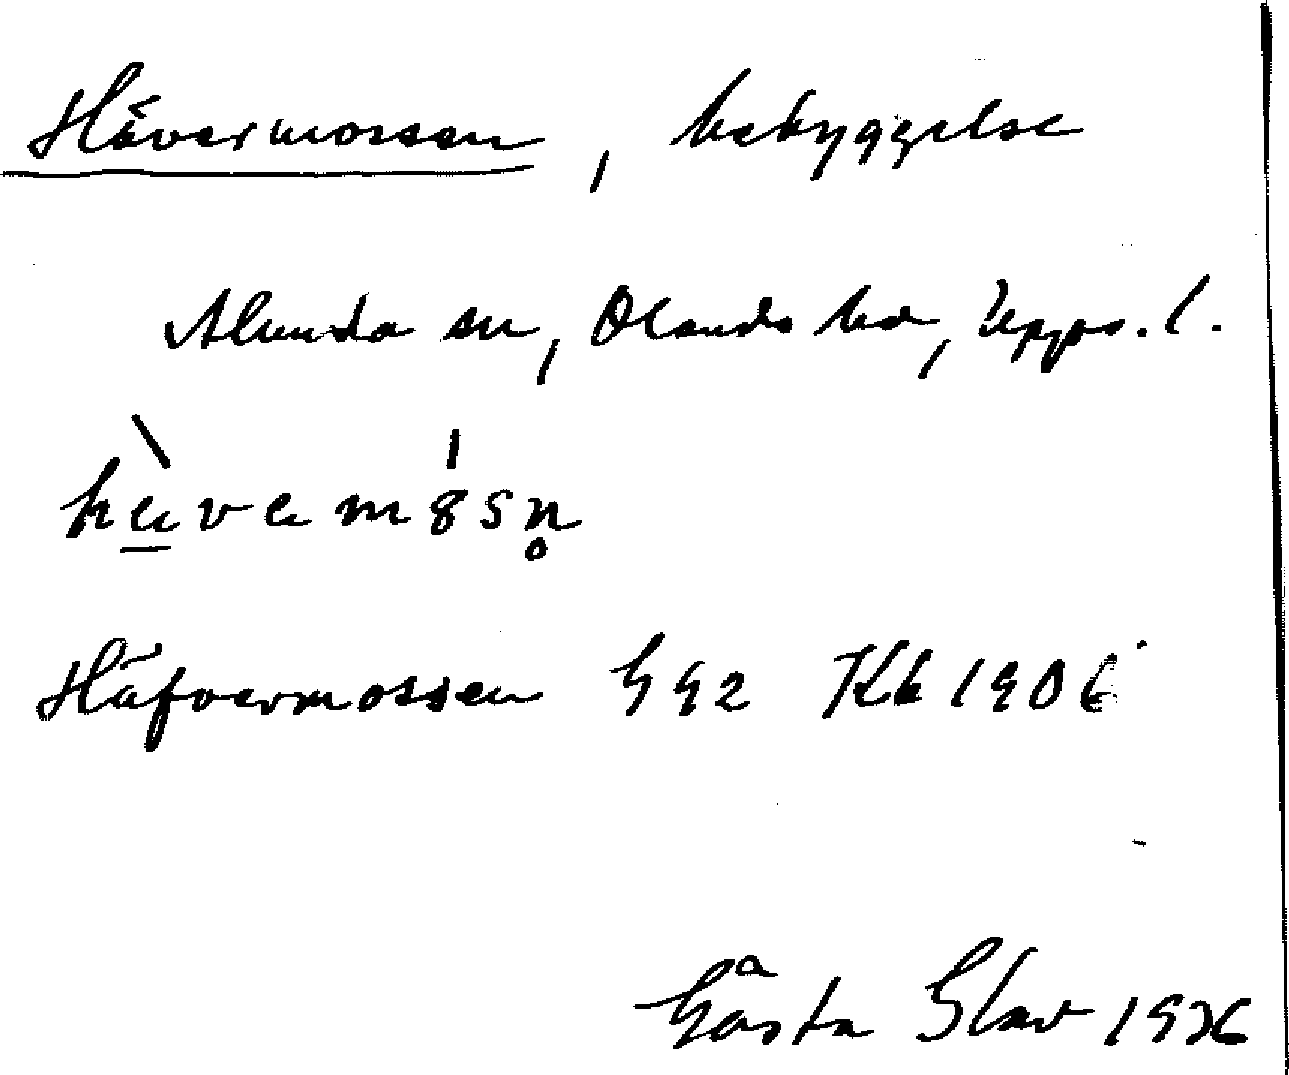 Hävermossen, bebyggelse
Alunda sn, Olands hd, Upps. l.
hävämȣsn̥
Häfvermossen G 92 Kb 1906
Gösta Slav 1926